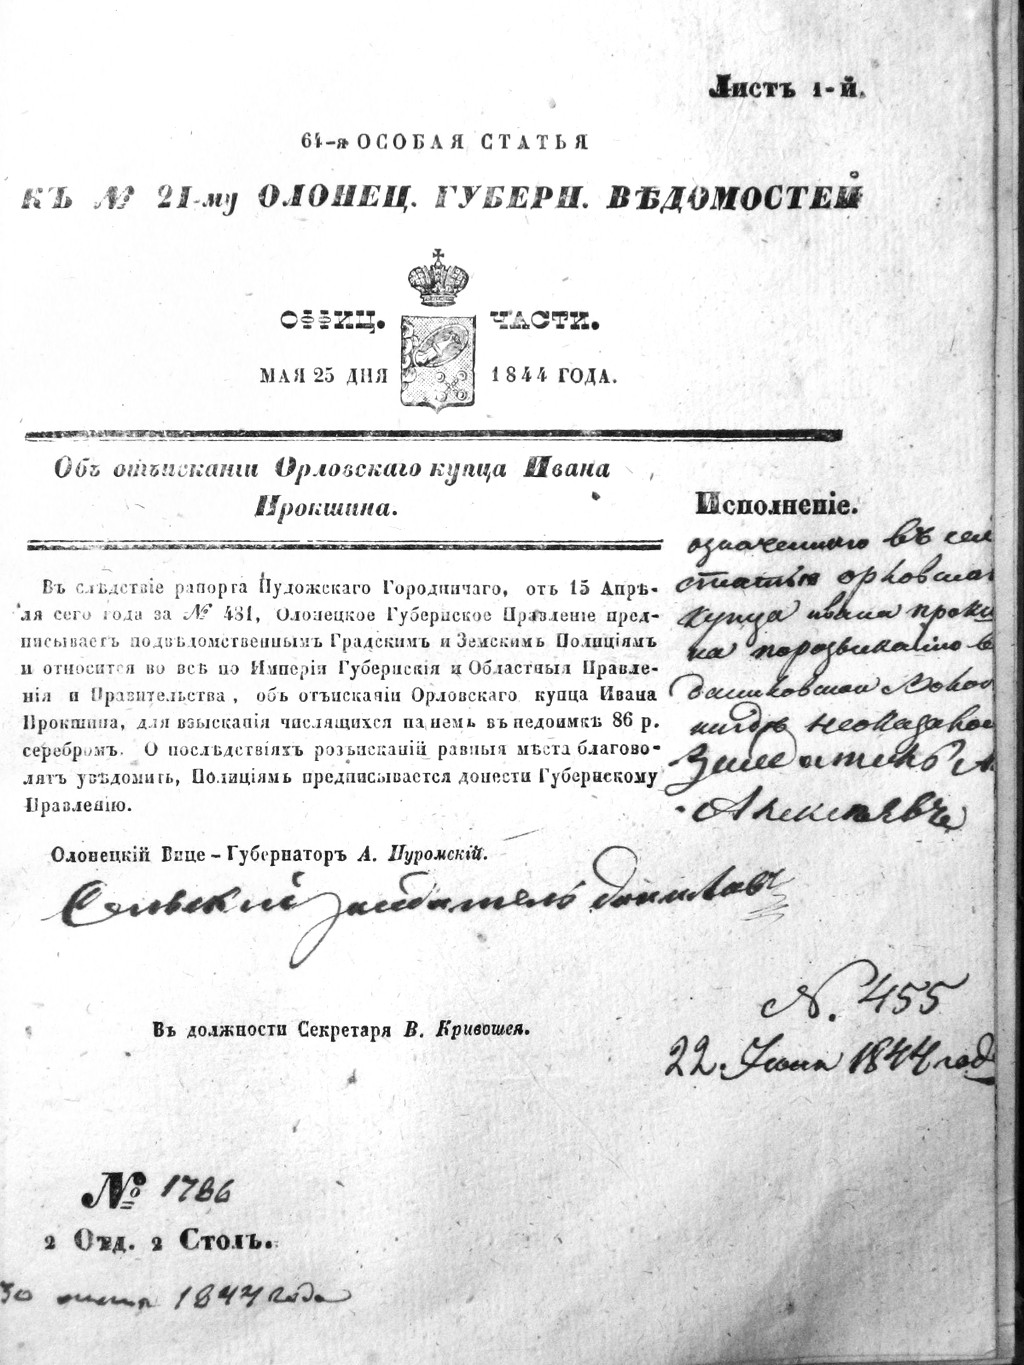 Листъ 1-й.
64-я ОСОБАЯ СТАТЬЯ
КЪ № 21-му ОЛОНЕЦ. ГУБЕРН. ВѢДОМОСТЕЙ
ОФФИЦ. ЧАСТИ.
МАЯ 25 ДНЯ 1844 ГОДА.
Объ отъисканіи Орловскаго купца Ивана
Прокшина.
Въ слѣдствіе рапорта Пудожскаго Городничаго, отъ 15 Апрѣ-
ля сего года за № 431, Олонецкое Губернское Правленіе пред-
писываетъ подвѣдомственнымъ Градскимъ и Земскимъ Полиціямъ
и относится во всѣ по Имперіи Губернскія и Областныя Правле-
нія и Правительства, объ отъисканіи Орловскаго купца Ивана
Прокшина, для взысканія числящихся на немъ въ недоимкѣ 86 р.
серебромъ. О послѣдствіяхъ розъисканій равныя мѣста благово-
лятъ увѣдомить, Полиціямъ предписывается донести Губернскому
Правленію.
Олонецкій Вице-Губернаторъ А. Пуромскій.
Сельский заседатель
Въ должности Секретаря В. Кривошея.
№ 1786
2 Отд. 2 Столъ.
30 1844 года
Исполненіе.
означенного въ сей
статьи орловска
купца ивана прокш
на
неоказалос
Заседатель
N. 455
22. Июня 1844 год